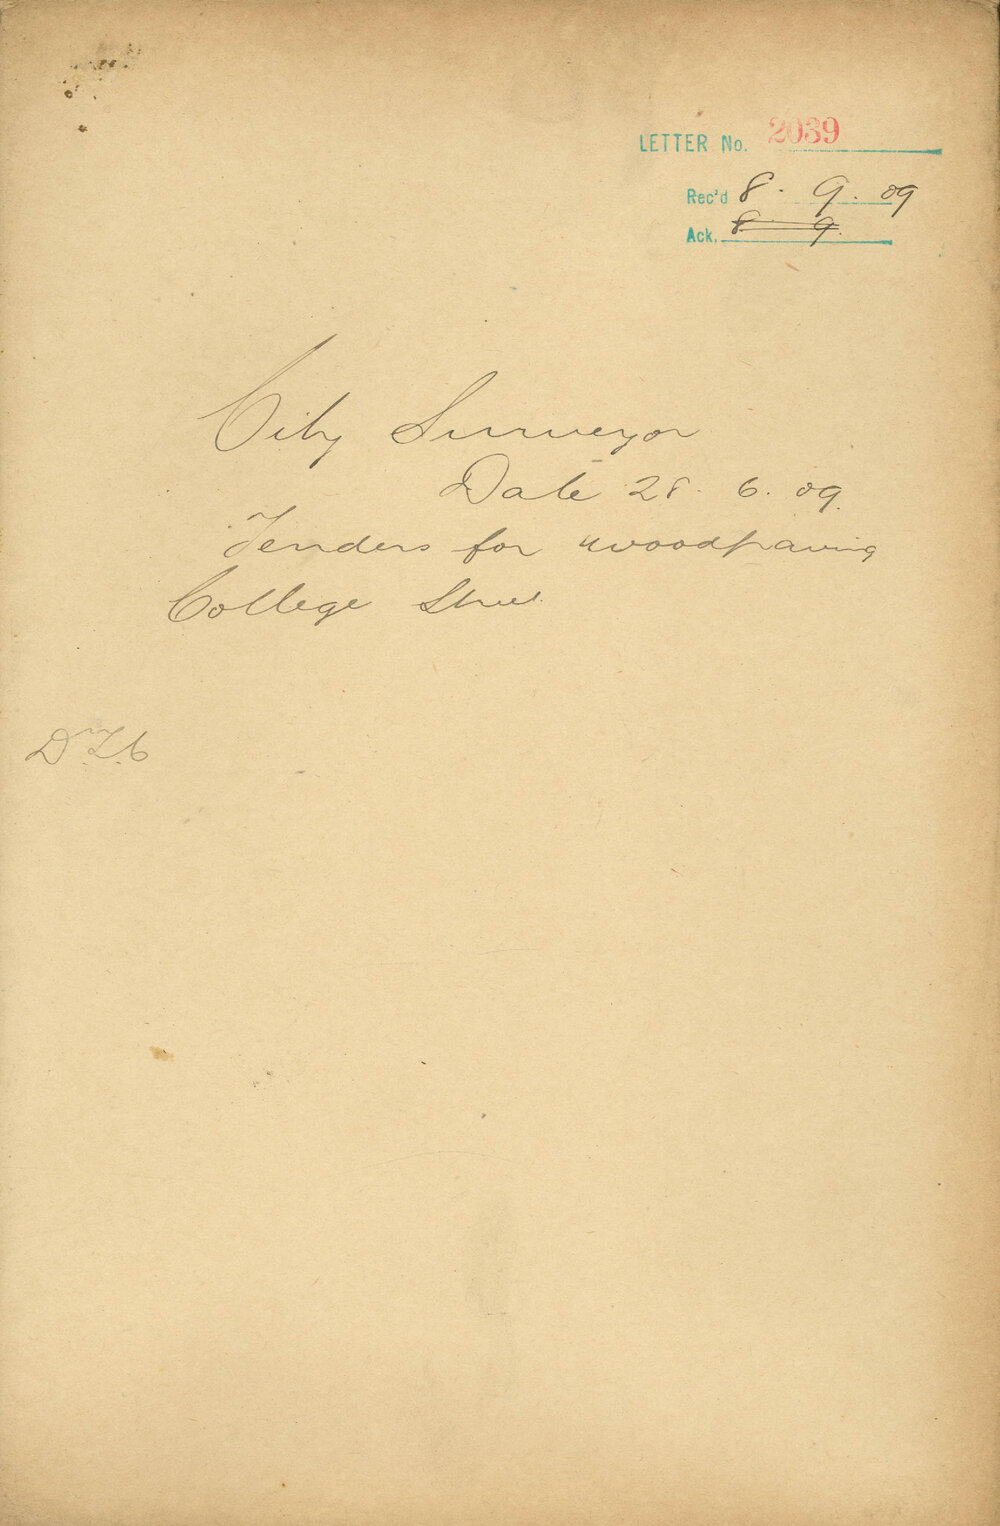 LETTER No. 2039
Rec'd 8. 9. 09
Ack. 8 9.
City Surveyor
Date 28. 6. 09.
Tenders for woodpaving
College Street